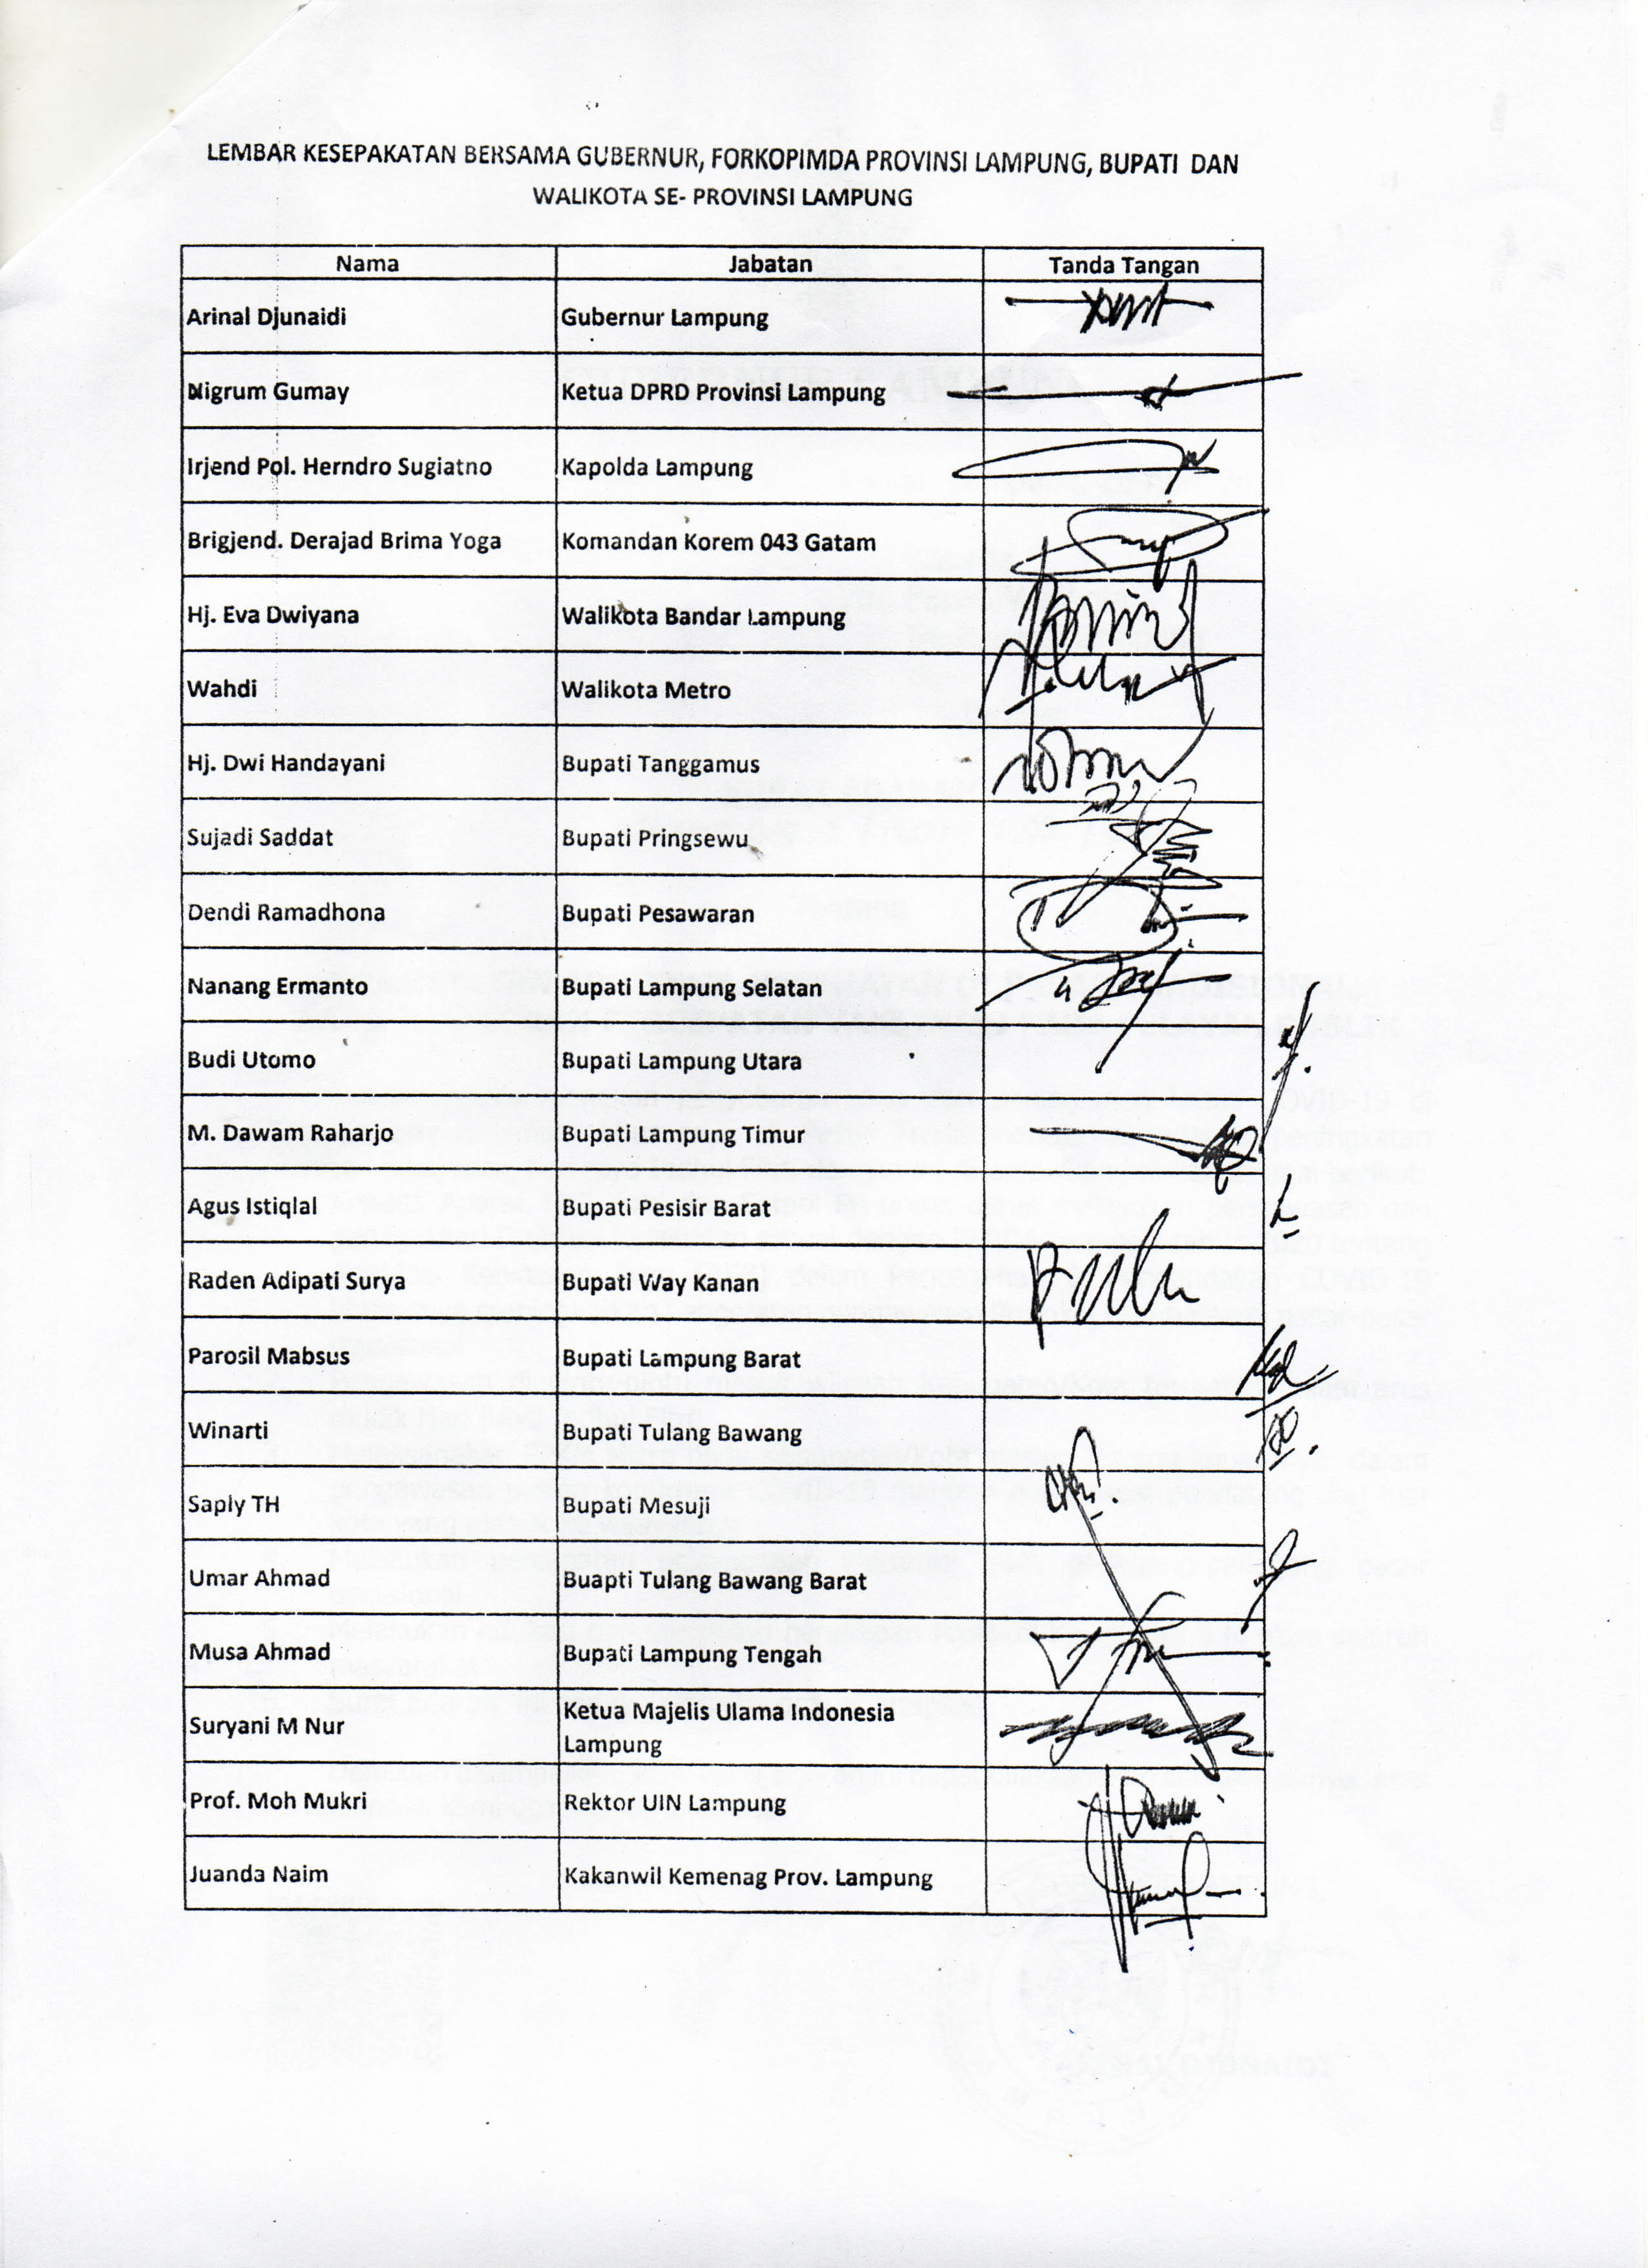 LEMBAR KESEPAKATAN BERSAMA GUBERNUR, FORKOPIMDA PROVINSI LAMPUNG, BUPATI DAN
WALIKOTA SE- PROVINSI LAMPUNG
Nama Jabatan Tanda Tangan
Arinal Djunaidi Gubernur Lampung
Nigrum Gumay Ketua DPRD Provinsi Lampung
Irjend Pol. Herndro Sugiatno Kapolda Lampung
Brigjend. Derajad Brima Yoga Komandan Korem 043 Gatam
Hj. Eva Dwiyana Walikota Bandar Lampung
Wahdi Walikota Metro
Hj. Dwi Handayani Bupati Tanggamus
Sujadi Saddat Bupati Pringsewu
Dendi Ramadhona Bupati Pesawaran
Nanang Ermanto Bupati Lampung Selatan
Budi Utomo Bupati Lampung Utara
M. Dawam Raharjo Bupati Lampung Timur
Agus Istiqlal Bupati Pesisir Barat
Raden Adipati Surya Bupati Way Kanan
Parosil Mabsus Bupati Lampung Barat
Winarti Bupati Tulang Bawang
Saply TH Bupati Mesuji
Umar Ahmad Buapti Tulang Bawang Barat
Musa Ahmad Bupati Lampung Tengah
Suryani M Nur Ketua Majelis Ulama Indonesia
Lampung
Prof. Moh Mukri Rektor UIN Lampung
Juanda Naim Kakanwil Kemenag Prov. Lampung